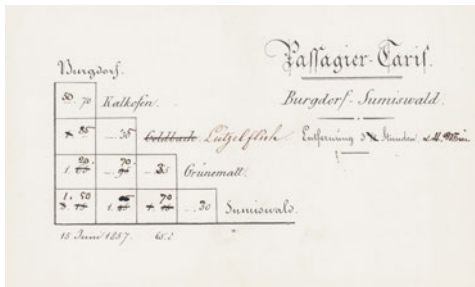 Passagier-Tarif.
Burgdorf-Sumiswald.
Entfernung Stunden
Burgdorf.
50 .. 70 Kalkofen.
85 .. 35 Goldbach Lützelflüh.
1. 20 .. 70 .. 35 Grünematt.
1. 50 1. 70 .. 30 Sumiswald.
15 Juni 1857.